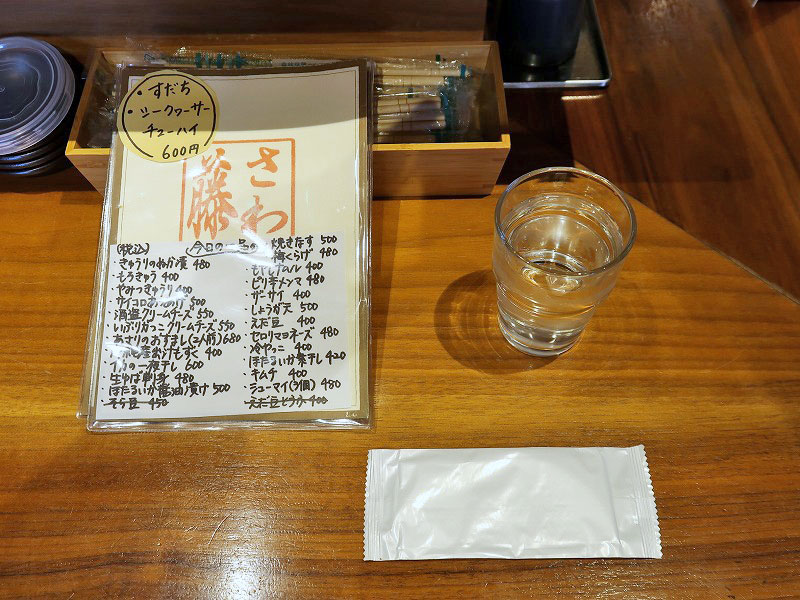 ・すだち
・シークヮーサー
チューハイ
600円
さわ
藤
(税込)
今日の一品
・きゅうりのぬか漬 480
・もろきゅう 400
・やみつききゅうり 400
500
・酒盗クリームチーズ 550
・いぶりがっこクリームチーズ 550
・あさりのおすまし(2人前) 680
もずく 400
の一夜干し 600
・生ゆば刺身 480
・ほたるいか醤油漬け 500
・そら豆 450
・焼きなす 500
・梅くらげ 480
・もやしナムル 400
・ピリ辛メンマ 480
・ザーサイ 400
・しょうが天 500
・えだ豆 400
・セロリマヨネーズ 480
・冷やっこ 400
・ほたるいか素干し 420
・キムチ 400
・シューマイ(3個) 480
・えだ豆とうふ 400